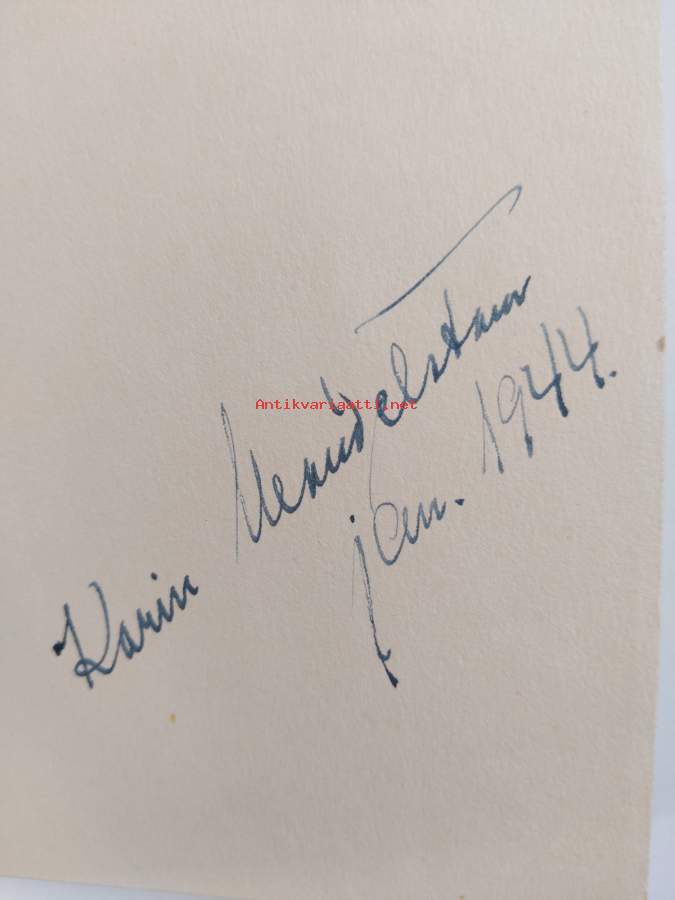 Karin Mandelstam
jan. 1944.
Antikvariaatti.net